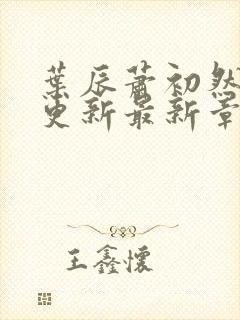 葉辰蕭初然
更新最新章
王鑫懷